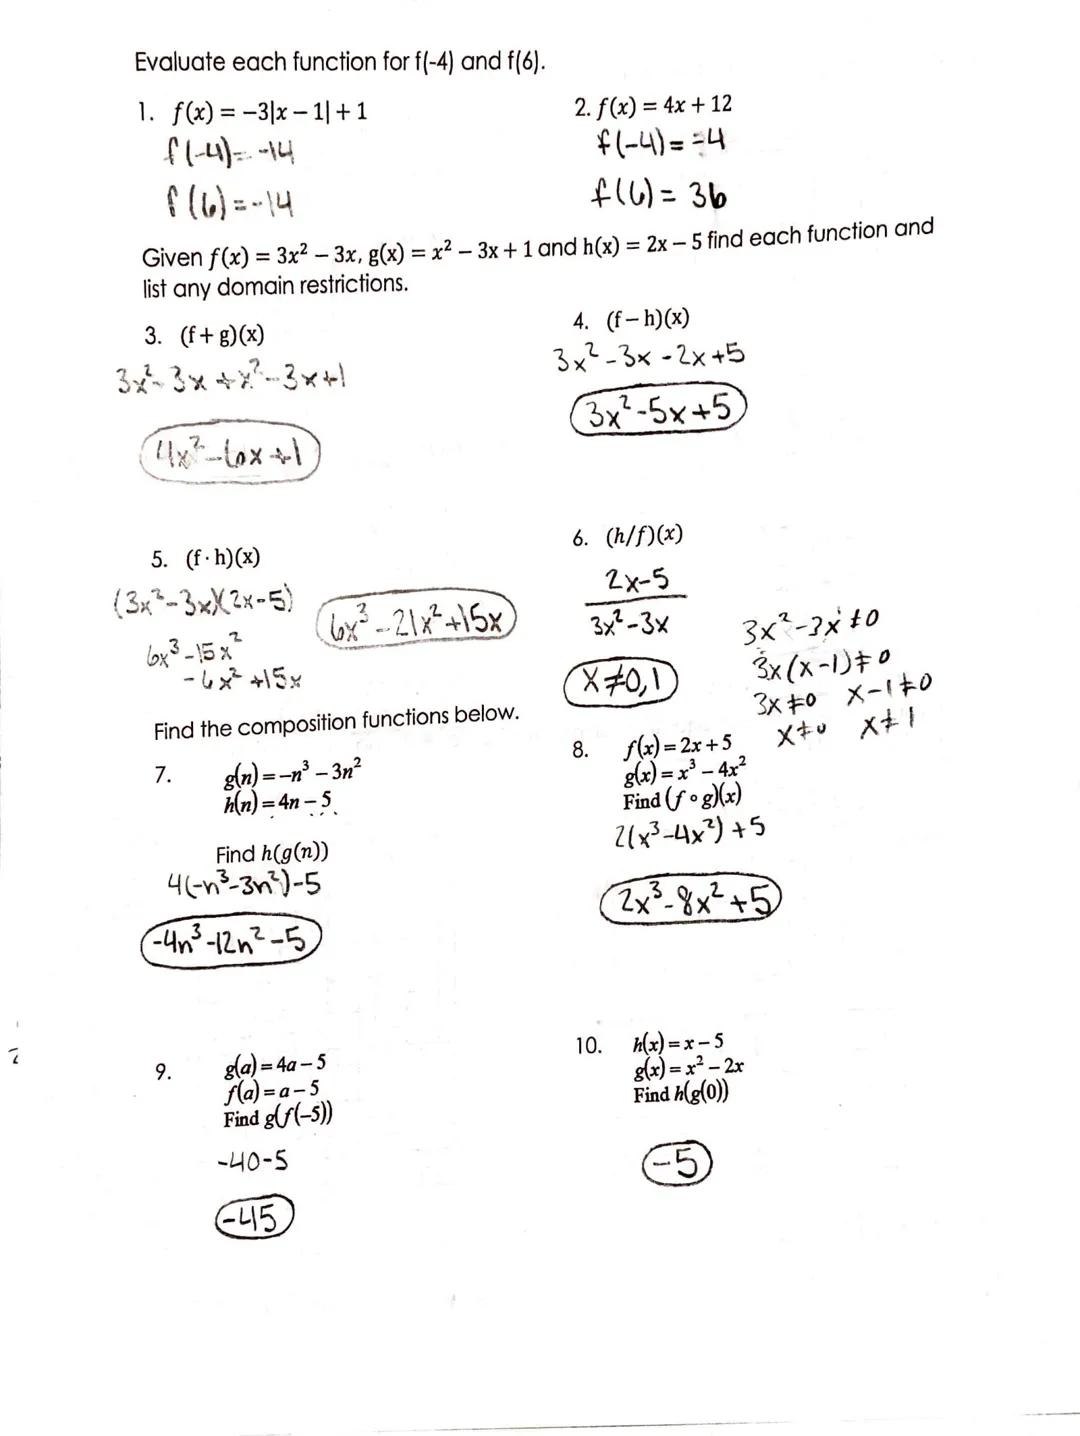 Evaluate each function for f(-4) and f(6).
1. f(x) = −3|x − 1| + 1
f(-4)= -14
f(6)=-14
2. f(x) = 4x + 12
f(-4)= -4
f(6)= 36
Given f(x) = 3x² − 3x, g(x) = x² − 3x + 1 and h(x) = 2x − 5 find each function and
list any domain restrictions.
3. (f + g)(x)
3x²-3x+x²-3x+1
4x²-6x+1
4. (f − h)(x)
3x²-3x-2x+5
3x²-5x+5
5. (f · h)(x)
(3x²-3x)(2x-5)
6x³-15x²
-6x²+15x
6x³-21x²+15x
6. (h/f)(x)
2x-5
3x²-3x
x≠0,1
3x²-3x≠0
3x(x-1)≠0
3x≠0 x-1≠0
x≠0 x≠1
Find the composition functions below.
7. g(n) = −n³ − 3n²
h(n) = 4n − 5
Find h(g(n))
4(-n³-3n²)-5
-4n³-12n²-5
8. f(x) = 2x + 5
g(x) = x³ − 4x²
Find (f ∘ g)(x)
2(x³-4x²)+5
2x³-8x²+5
9. g(a) = 4a − 5
f(a) = a − 5
Find g(f(−5))
-40-5
-45
10. h(x) = x − 5
g(x) = x² − 2x
Find h(g(0))
-5